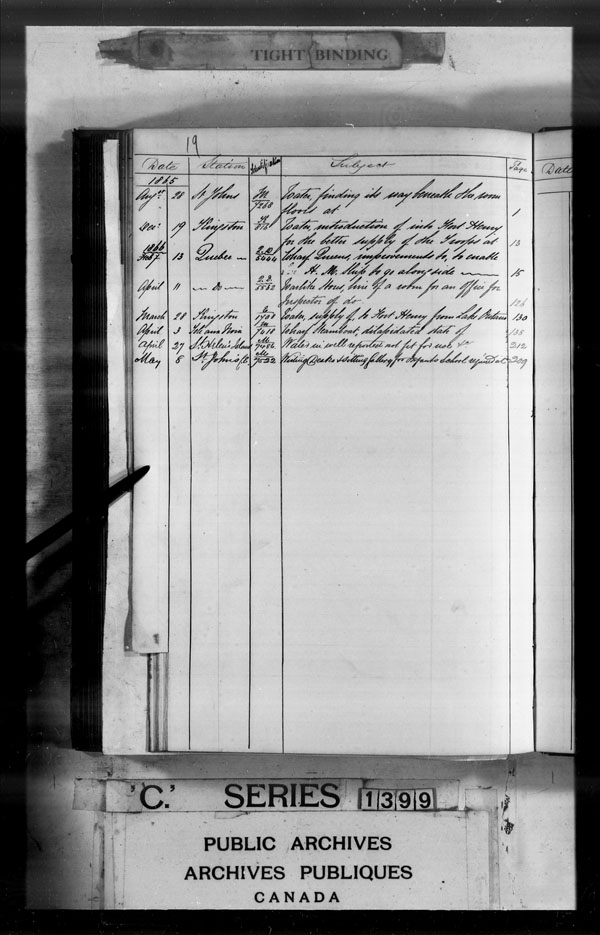 TIGHT BINDING
19
Date Station Subject Page Date
1865
Augst 28 St. Johns M 7260 Water, finding its way beneath the room
floors at 1
Dec: 19 Kingston Water, introduction of into Fort Henry
for the better supply of the Troops at 13
1866
Feby 13 Quebec Wharf Queens, improvements to, to enable
H. M. Ships to go along side 15
April 11 do Warlike Stores, hire of a room for an Office for
Inspector of do 126
March 28 Kingston Water, supply of, to Fort Henry from Lake Ontario 130
April 3 Wharf Steamboat, dilapidated state of 135
April 27 St. Helen's Island Water in well reported not fit for use &c 212
May 8 St. Johns C.E. Writing Desks & sitting for Infants School required at 209
'C.' SERIES 1399
PUBLIC ARCHIVES
ARCHIVES PUBLIQUES
CANADA